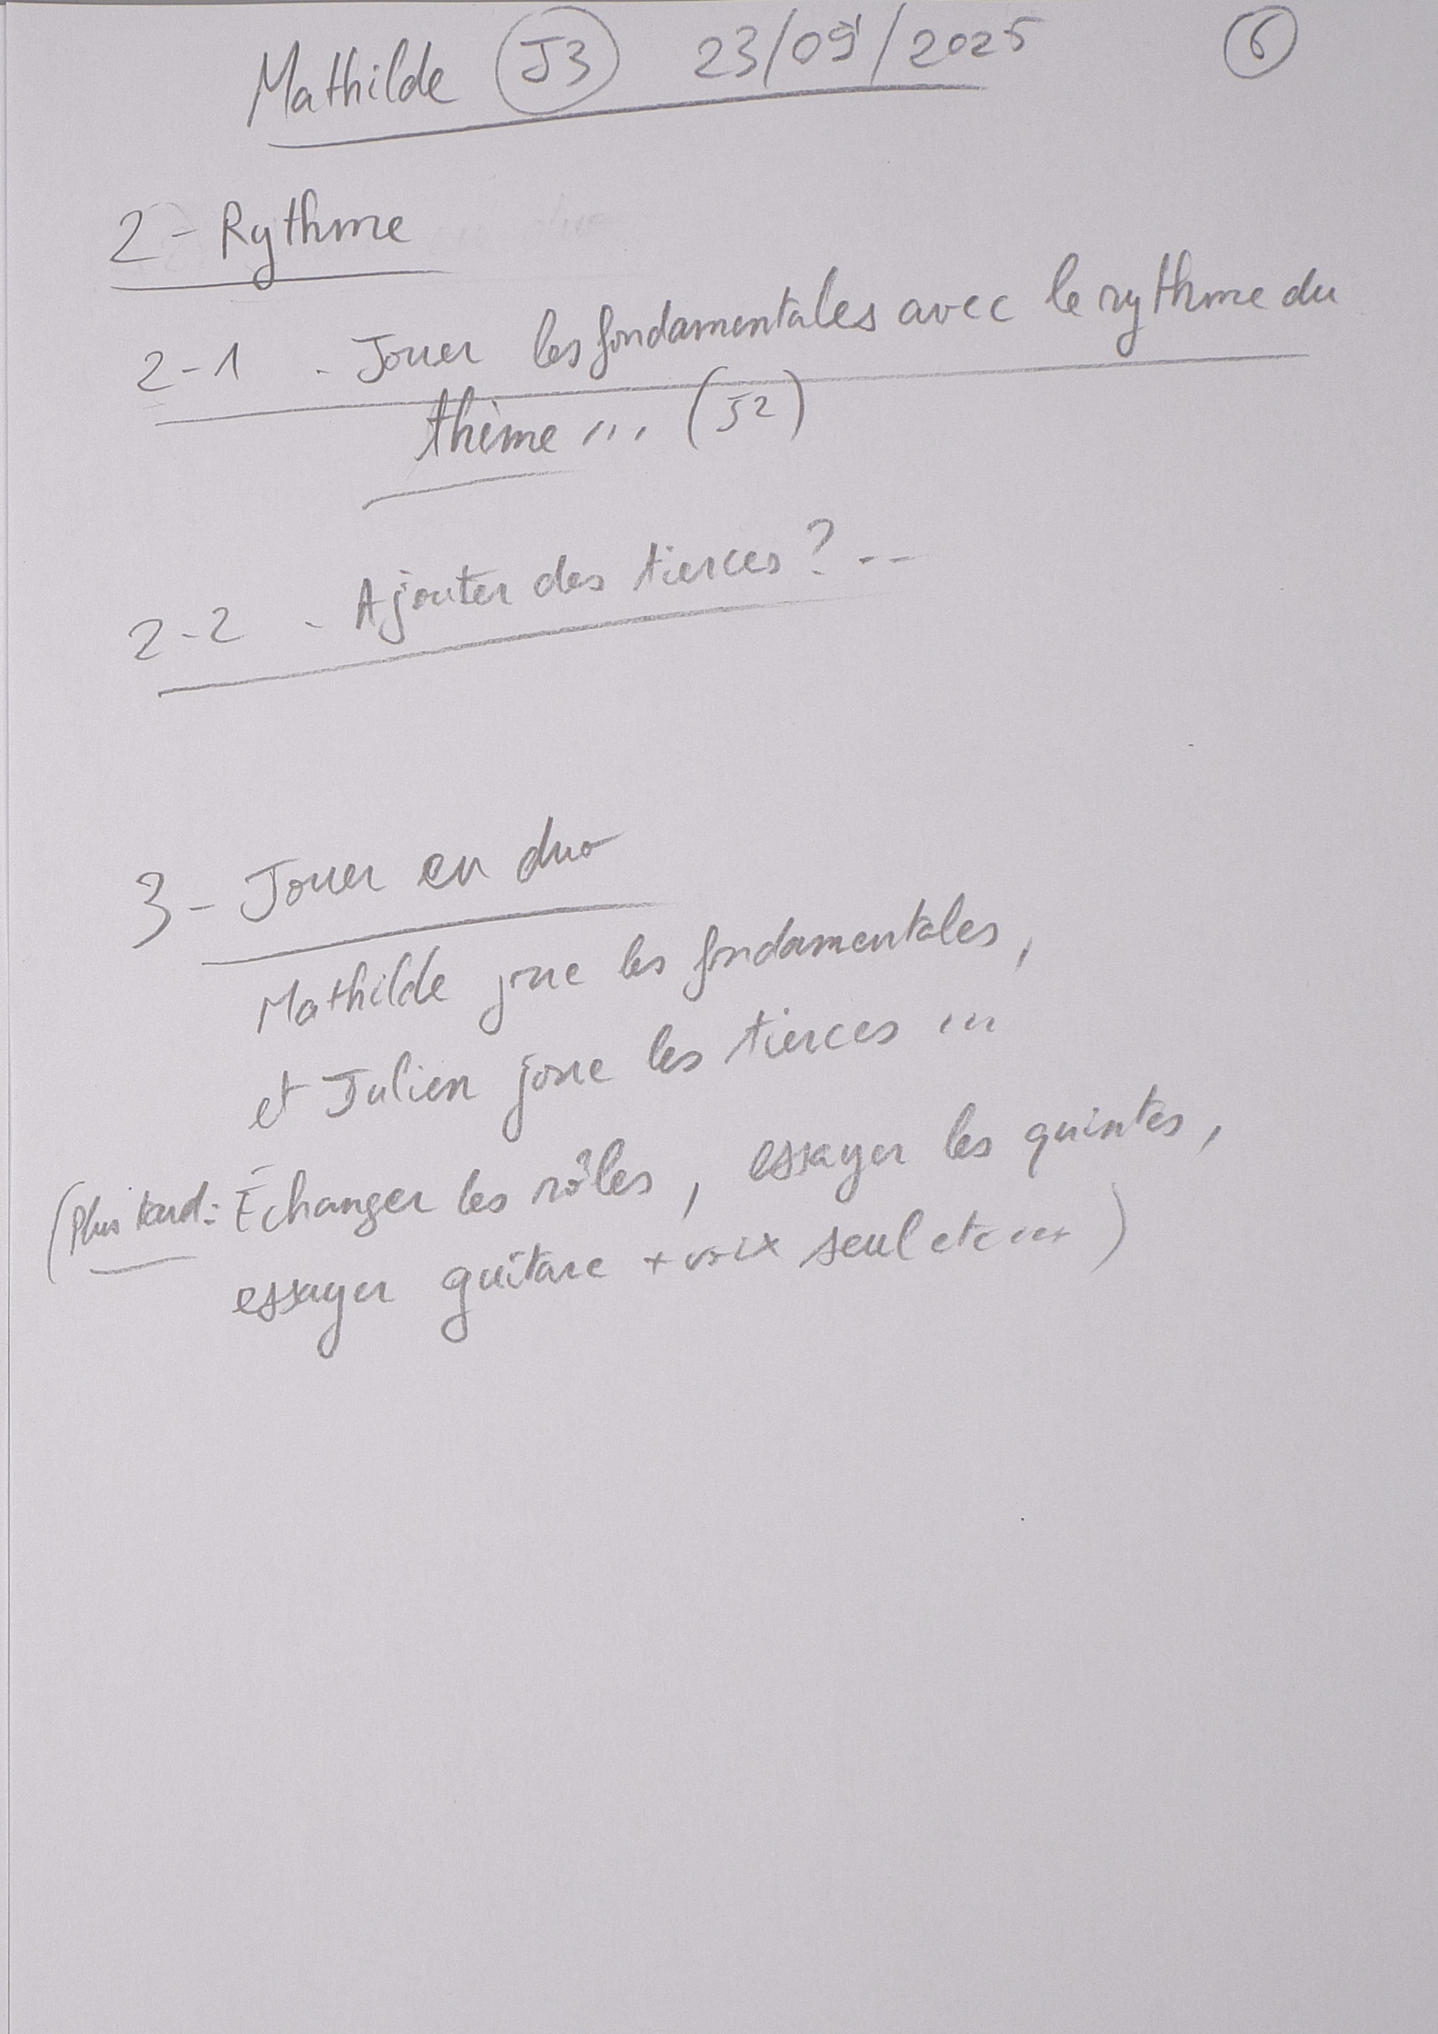 Mathilde J3 23/09/2025 6
2 - Rythme
2-1 - Jouer les fondamentales avec le rythme du
thème ... (J2)
2-2 - Ajouter des tierces ? --
3 - Jouer en duo
Mathilde joue les fondamentales,
et Julien joue les tierces ...
(Plus tard : Échanger les rôles, essayer les quintes,
essayer guitare + voix seul etc ...)